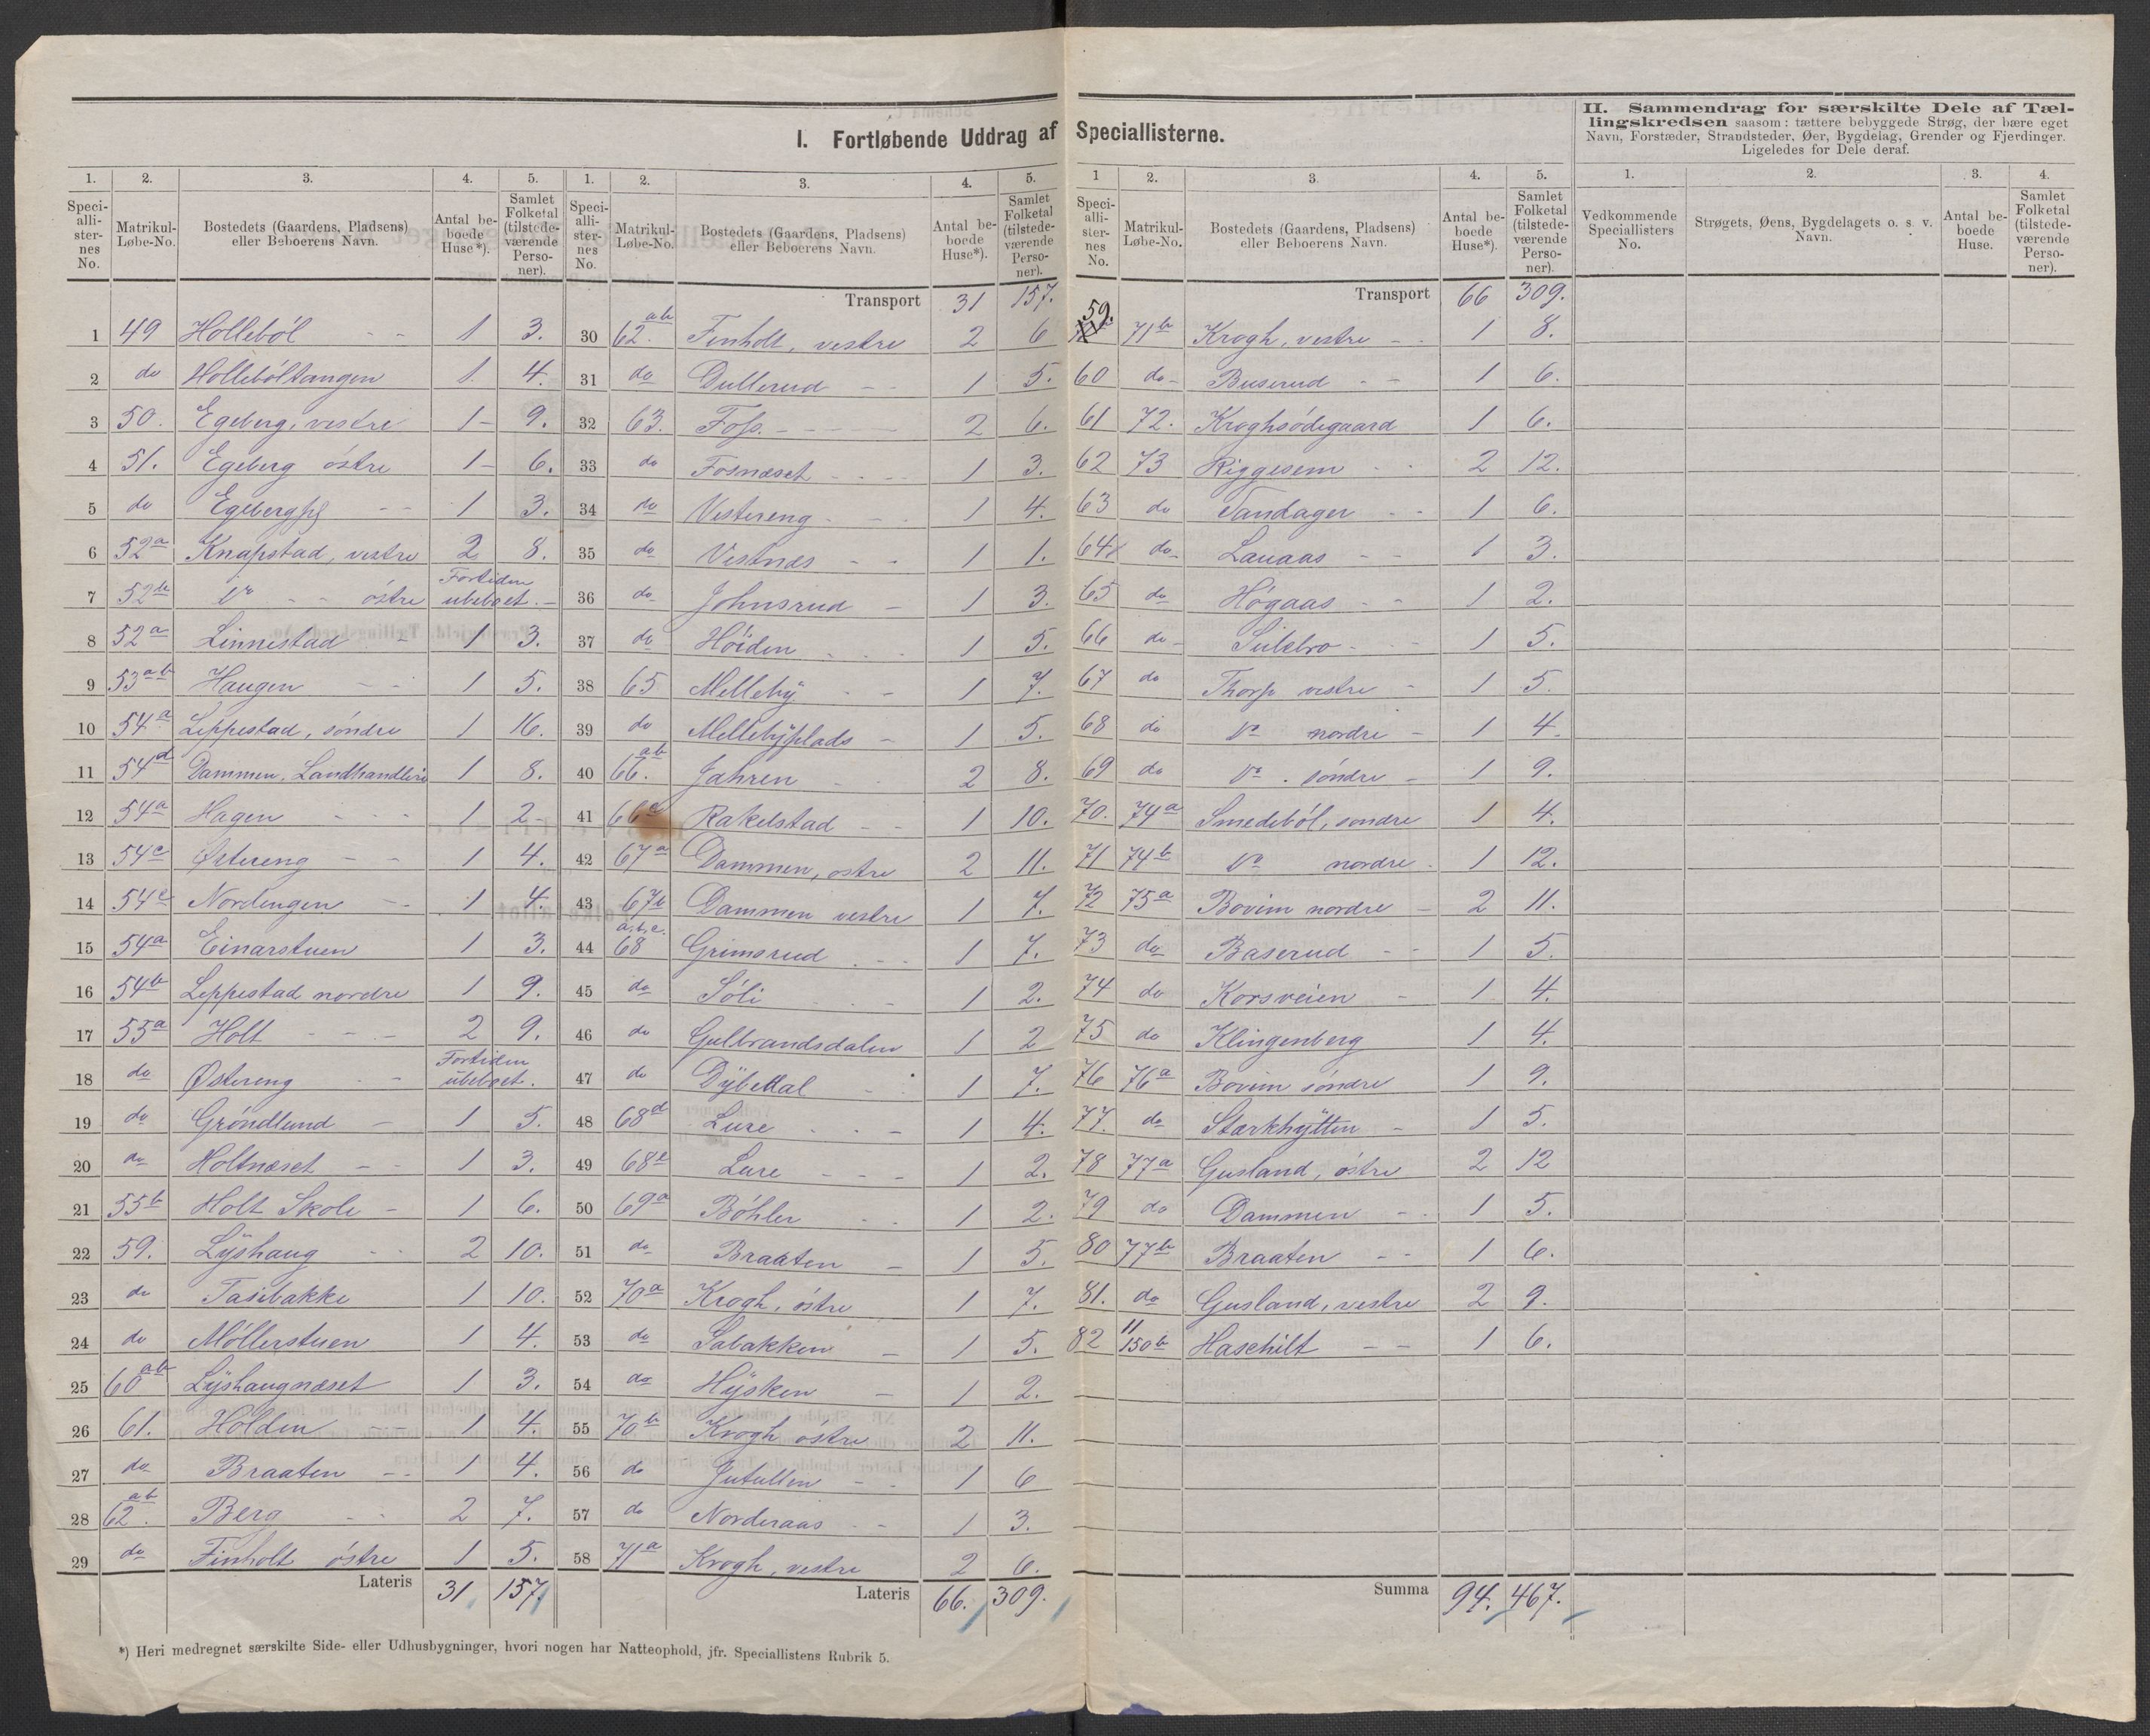 I. Fortløbende Uddrag af Speciallisterne.
1. 2. 3. 4. 5.
Specialli-sternes No. Matrikul-Løbe-No. Bostedets (Gaardens, Pladsens) eller Beboerens Navn. Antal beboede Huse*). Samlet Folketal (tilstedeværende Personer).
1 49 Hollebøl - - 1 3.
2 do Hollebøltangen 1 4.
3 50. Egeberg, vestre 1 - 9.
4 51. Egeberg østre 1 - 6.
5 do Egebergpl - - 1 3.
6 52a Knapstad, vestre 2 8.
7 52b do - - østre Fortiden ubeboet. -
8 52a Linnestad - 1 3.
9 53ab Haugen - - 1 5.
10 54a Leppestad, søndre 1 16.
11 54d Dammen, Landhandleri 1 8.
12 54a Hagen - - - 1 2 -
13 54c Østereng - - 1 4.
14 54e Nordengen - - 1 4.
15 54a Einarstuen 1 3.
16 54b Leppestad nordre 1 9.
17 55a Holt - - - 2 9.
18 do Østereng - - Fortiden ubeboet.
19 do Grøndlund - 1 5.
20 do Holtnæset - - 1 3.
21 55b Holt Skole - 1 6.
22 59. Lÿshaug - - 2 10.
23 do Tasebakke 1 10.
24 do Møllerstuen 1 4.
25 60ab Lÿshaugnæset 1 3.
26 61. Holden - - 1 4.
27 do Braaten - - 1 4.
28 62ab. Berg - - 2 7.
29 do Finholt østre 1 5.
Lateris 31 157.
1. 2. 3. 4. 5.
Specialli-sternes No. Matrikul-Løbe-No. Bostedets (Gaardens, Pladsens) eller Beboerens Navn. Antal beboede Huse*). Samlet Folketal (tilstedeværende Personer).
Transport 31 157.
30 62.ab Finholt, vestre 2 6
31 do Dullerud - - 1 5.
32 63. Foss. - 2 6.
33 do Fosnæset - - - 1 3.
34 do Vestereng - - 1 4.
35 do Vestnes - - 1 1.
36 do Johnsrud - 1 3.
37 do Høiden - - - 1 5.
38 65 Mellebÿ - - 1 7.
39 do Mellebÿplads - 1 5.
40 66.ab Jahren - - 2 8.
41 66c Rakelstad - - 1 10.
42 67a Dammen, østre 2 11.
43 67b Dammen vestre 1 7.
44 68 a.b.c. Grimsrud - - 1 7.
45 do Søli - - 1 2.
46 do Gulbrandsdalen 1 2
47 do Dÿbekdal - 1 7.
48 68d Lure - - - 1 4.
49 68e Lure - - - 1 2.
50 69a Bøhler - - 1 2.
51 do Braaten - 1 5.
52 70a Krogh, østre 1 7.
53 do Labakken - 1 5.
54 do Hÿsken - 1 2.
55 70b Krogh østre 2 11.
56 do Jutulten - - 1 6
57 do Norderaas - - 1 3.
58 71a Krogh, vestre 2 6.
Lateris 66. 309.
1 2. 3. 4. 5.
Specialli-sternes No. Matrikul-Løbe-No. Bostedets (Gaardens, Pladsens) eller Beboerens Navn. Antal beboede Huse*). Samlet Folketal (tilstedeværende Personer).
Transport 66 309.
59. 71b Krogh, vestre - - 1 8.
60 do - Buserud - - 1 6.
61 72. Kroghsødegaard 1 6.
62 73 Riggesem - - 2 12.
63 do Tandager - - 1 6.
64 do - Lauaas - - 1 3.
65 do Høgaas - - 1 2.
66 do - Sulebro - - - 1 5.
67 do Thorp vestre - 1 5.
68 do do nordre - 1 4.
69 do do . søndre - 1 9.
70. 74a Smedebøl, søndre 1 4.
71 74b do nordre . 1 12.
72 75a Bovim nordre - 2 11.
73 do Baserud - - 1 5.
74 do Korsveien - 1 4.
75 do Klingenberg 1 4.
76 76a Bovim søndre 1 9.
77. do Stærkhÿtten - 1 5.
78 77a Gusland, østre 2 12
79 do Dammen - - 1 5.
80 77b Braaten - - 1 6.
81. do Gusland, vestre 2 9.
82 11 150b Hasehilt - - 1 6.
Summa 94. 467.
II. Sammendrag for særskilte Dele af Tællingskredsen saasom: tættere bebyggede Strøg, der bære eget
Navn, Forstæder, Strandsteder, Øer, Bygdelag, Grender og Fjerdinger.
Ligeledes for Dele deraf.
1. 2. 3. 4.
Vedkommende Speciallisters No. Strøgets, Øens, Bygdelagets o. s. v. Navn. Antal beboede Huse. Samlet Folketal (tilstedeværende Personer).
*) Heri medregnet særskilte Side- eller Udhusbygninger, hvori nogen har Natteophold, jfr. Speciallistens Rubrik 5.